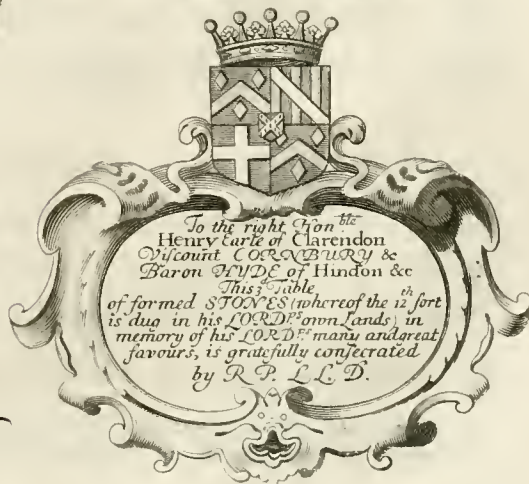 To the right Hon.ble
Henry Earle of Clarendon
Viscount CORNBURY &
Baron HYDE of Hindon &c
This 3 Table
of formed STONES (whereof the 12th sort
is dug in his LORDPs own Lands) in
memory of his LORDPs many and great
favours, is gratefully consecrated
by R. P. L L. D.